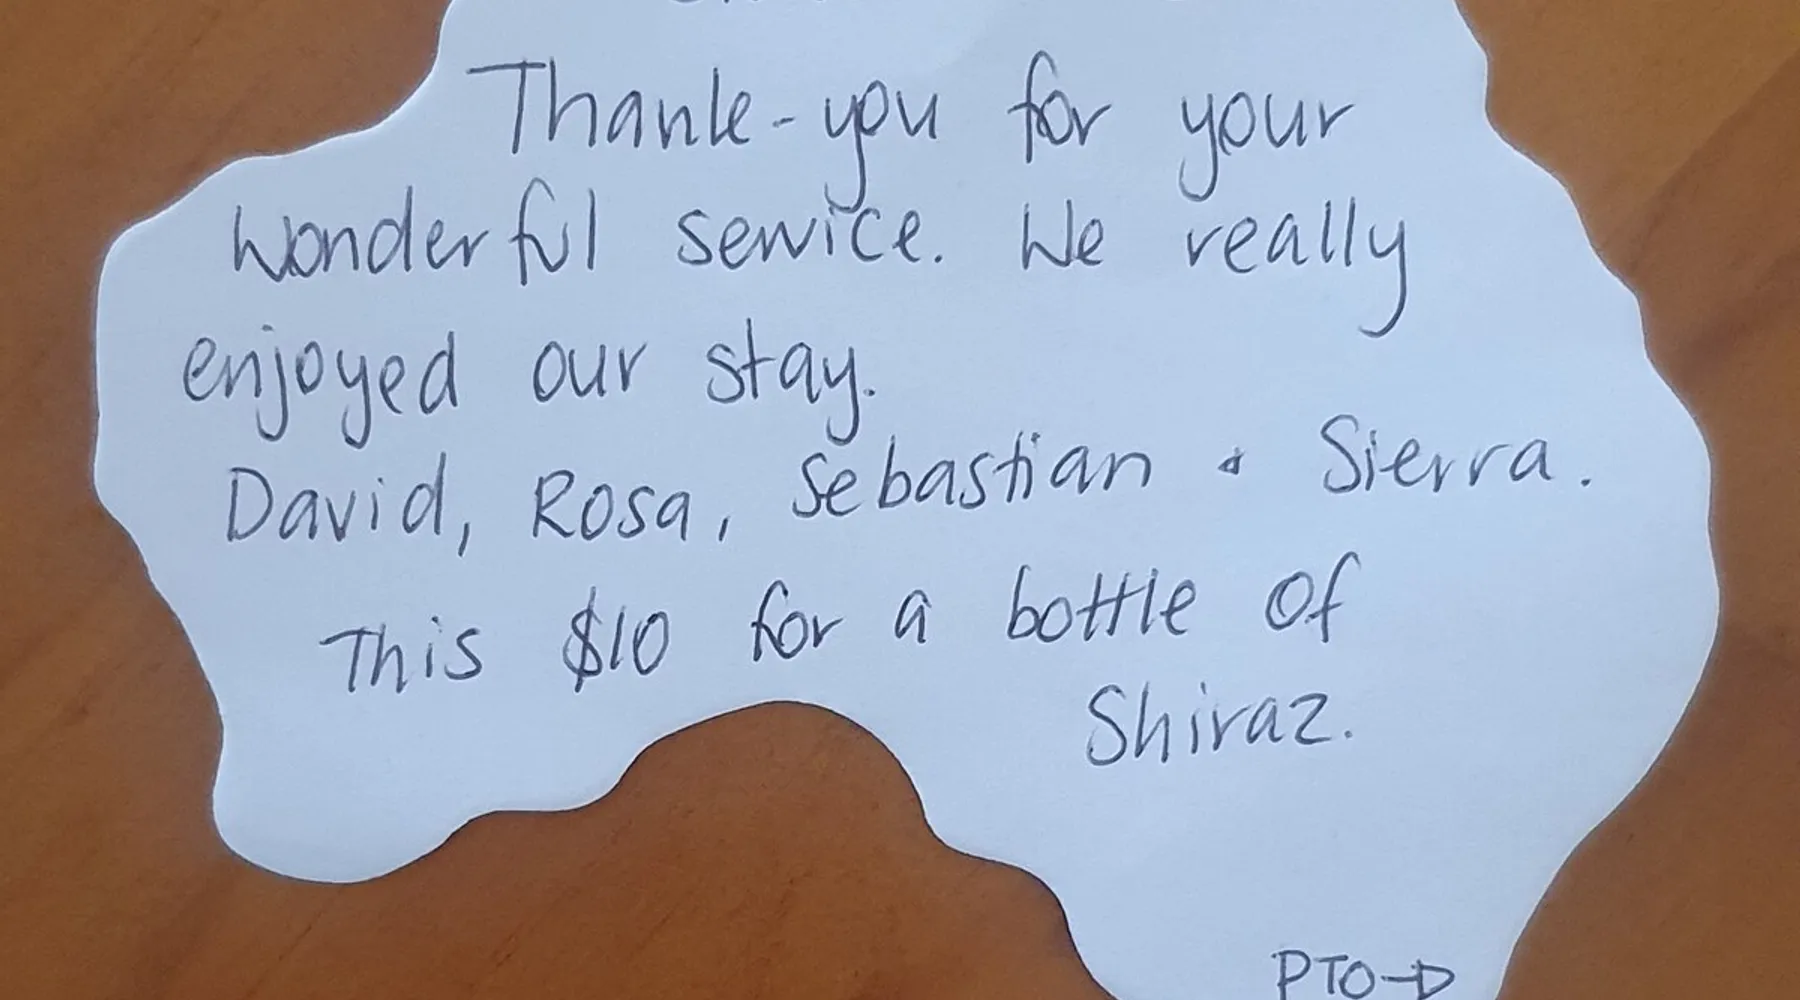 Thank-you for your
wonderful service. We really
enjoyed our stay.
David, Rosa, Sebastian & Sierra.
This $10 for a bottle of
Shiraz.
PTO→